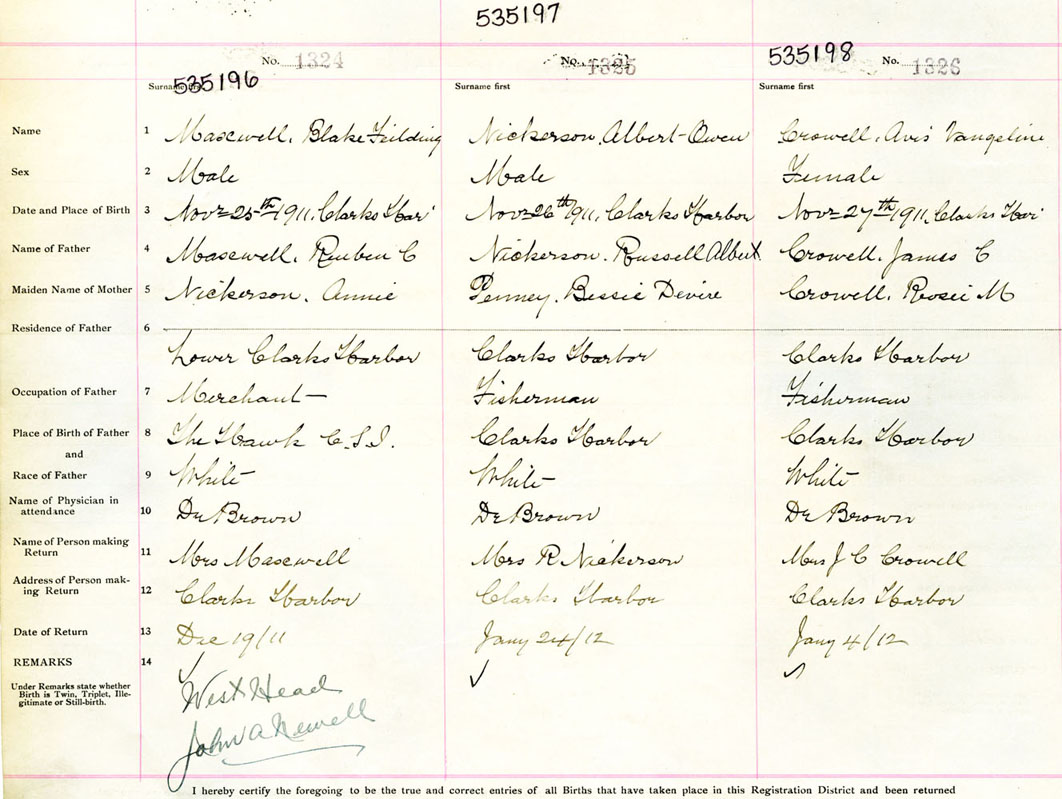 535197
No. 1324 No. 1325 535198 No. 1326
535196
Surname first Surname first Surname first
Name 1 Maxwell, Blake Fielding Nickerson, Albert Owen Crowell, Avis Vangeline
Sex 2 Male Male Female
Date and Place of Birth 3 Novr 25th 1911, Clarks Har' Novr 26th 1911, Clarks Harbor Novr 27th 1911, Clarks Har'
Name of Father 4 Maxwell, Reuben C Nickerson, Russell Albert Crowell, James C
Maiden Name of Mother 5 Nickerson, Annie Penney, Bessie Crowell, M
Residence of Father 6
Lower Clarks Harbor Clarks Harbor Clarks Harbor
Occupation of Father 7 Merchant Fisherman Fisherman
Place of Birth of Father 8 The Hawk C.S.I. Clarks Harbor Clarks Harbor
and
Race of Father 9 White White White
Name of Physician in
attendance 10 Dr Brown Dr Brown Dr Brown
Name of Person making
Return 11 Mrs Maxwell Mrs R Nickerson Mrs J C Crowell
Address of Person mak-
ing Return 12 Clarks Harbor Clarks Harbor Clarks Harbor
Date of Return 13 Dec 19/11 Jany 24/12 Jany 4/12
REMARKS 14
Under Remarks state whether
Birth is Twin, Triplet, Ille-
gitimate or Still-birth.
West Head
John A Newell
I hereby certify the foregoing to be the true and correct entries of all Births that have taken place in this Registration District and been returned